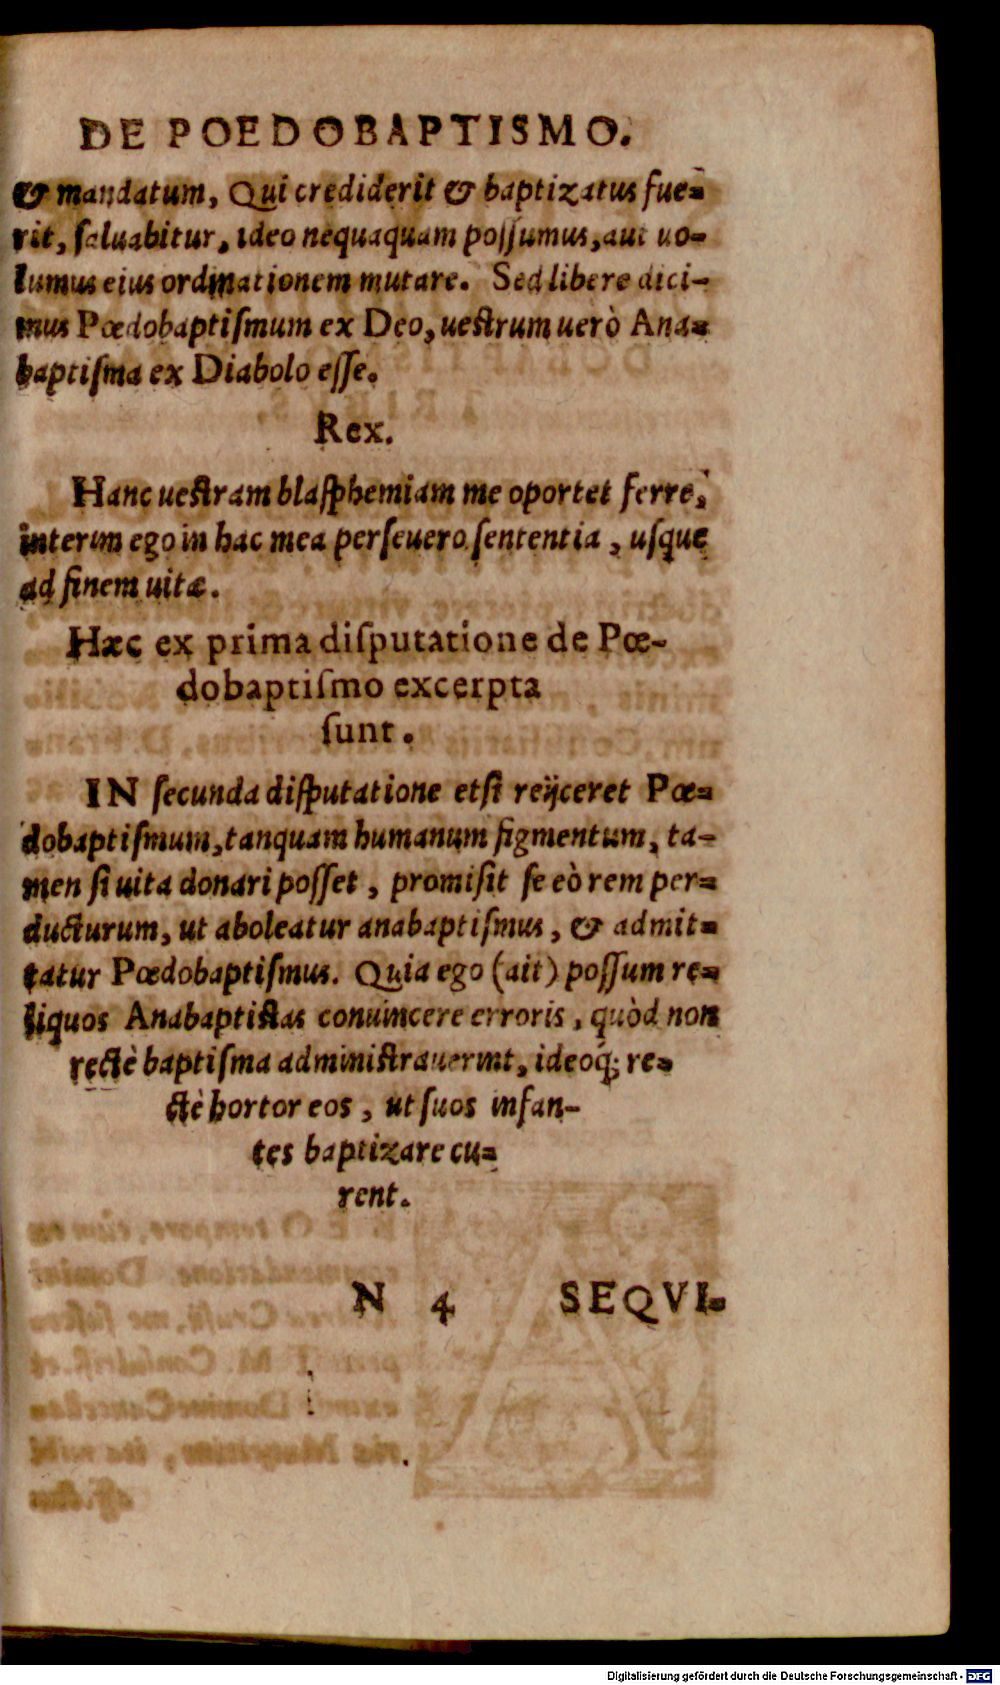 DE POEDOBAPTISMO.
& mandatum, Qui crediderit & baptizatus fue-
rit, saluabitur, ideo nequaquam possumus, aut uo-
lumus eius ordinationem mutare. Sed libere dici-
mus Pœdobaptismum ex Deo, uestrum uerò Ana-
baptisma ex Diabolo esse.
Rex.
Hanc uestram blasphemiam me oportet ferre,
interim ego in hac mea perseuero sententia, usque
ad finem uitæ.
Hæc ex prima disputatione de Pœ-
dobaptismo excerpta
sunt.
IN secunda disputatione etsi reijceret Pœ-
dobaptismum, tanquam humanum figmentum, ta-
men si uita donari posset, promisit se eò rem per-
ducturum, ut aboleatur anabaptismus, & admit-
tatur Pœdobaptismus. Quia ego (ait) possum re-
liquos Anabaptistas conuincere erroris, quòd non
rectè baptisma administrauerint, ideoq́; re-
ctè hortor eos, ut suos infan-
tes baptizare cu-
rent.
N 4 SEQVI-
Digitalisierung gefördert durch die Deutsche Forschungsgemeinschaft - DFG